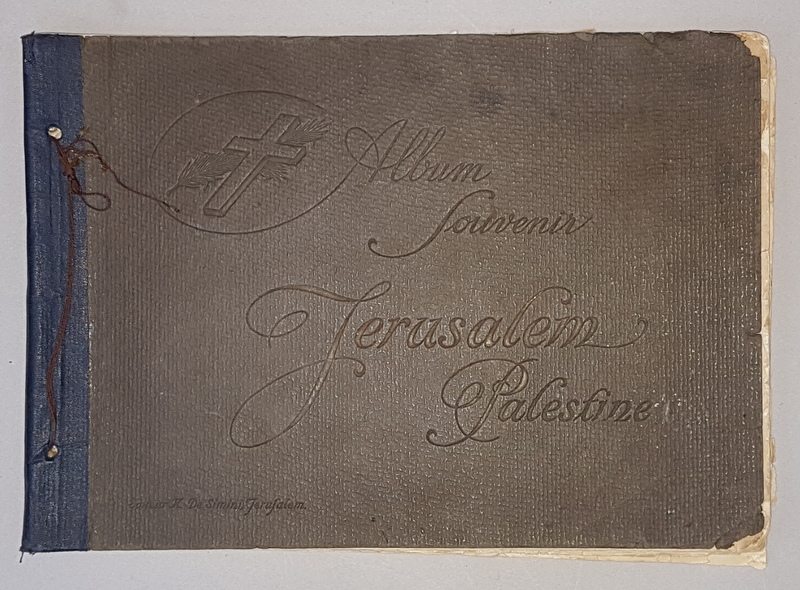 Album
Souvenir
Jerusalem
Palestine
De Simini, Jerusalem.